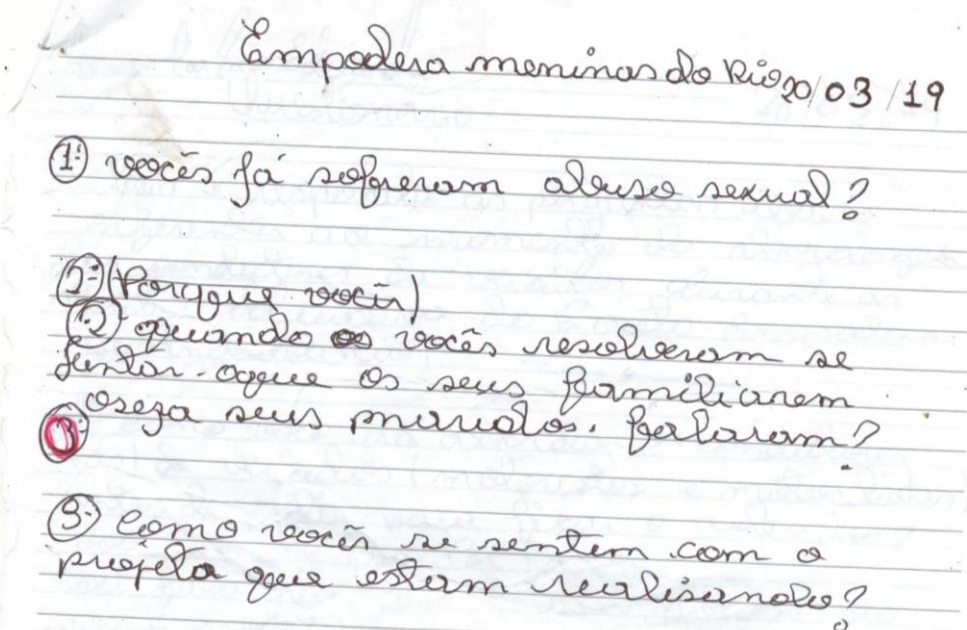 Empodera meninas do Rio 20/03/19
1º vocês já sofreram abuso sexual?
2º (Porque vocês)
2 quando os vocês resolveram se
juntar. oque os seus familiarem
oseja seus maridos. falaram?
3º
3º como vocês se sentem com o
projeto que estam realisando?